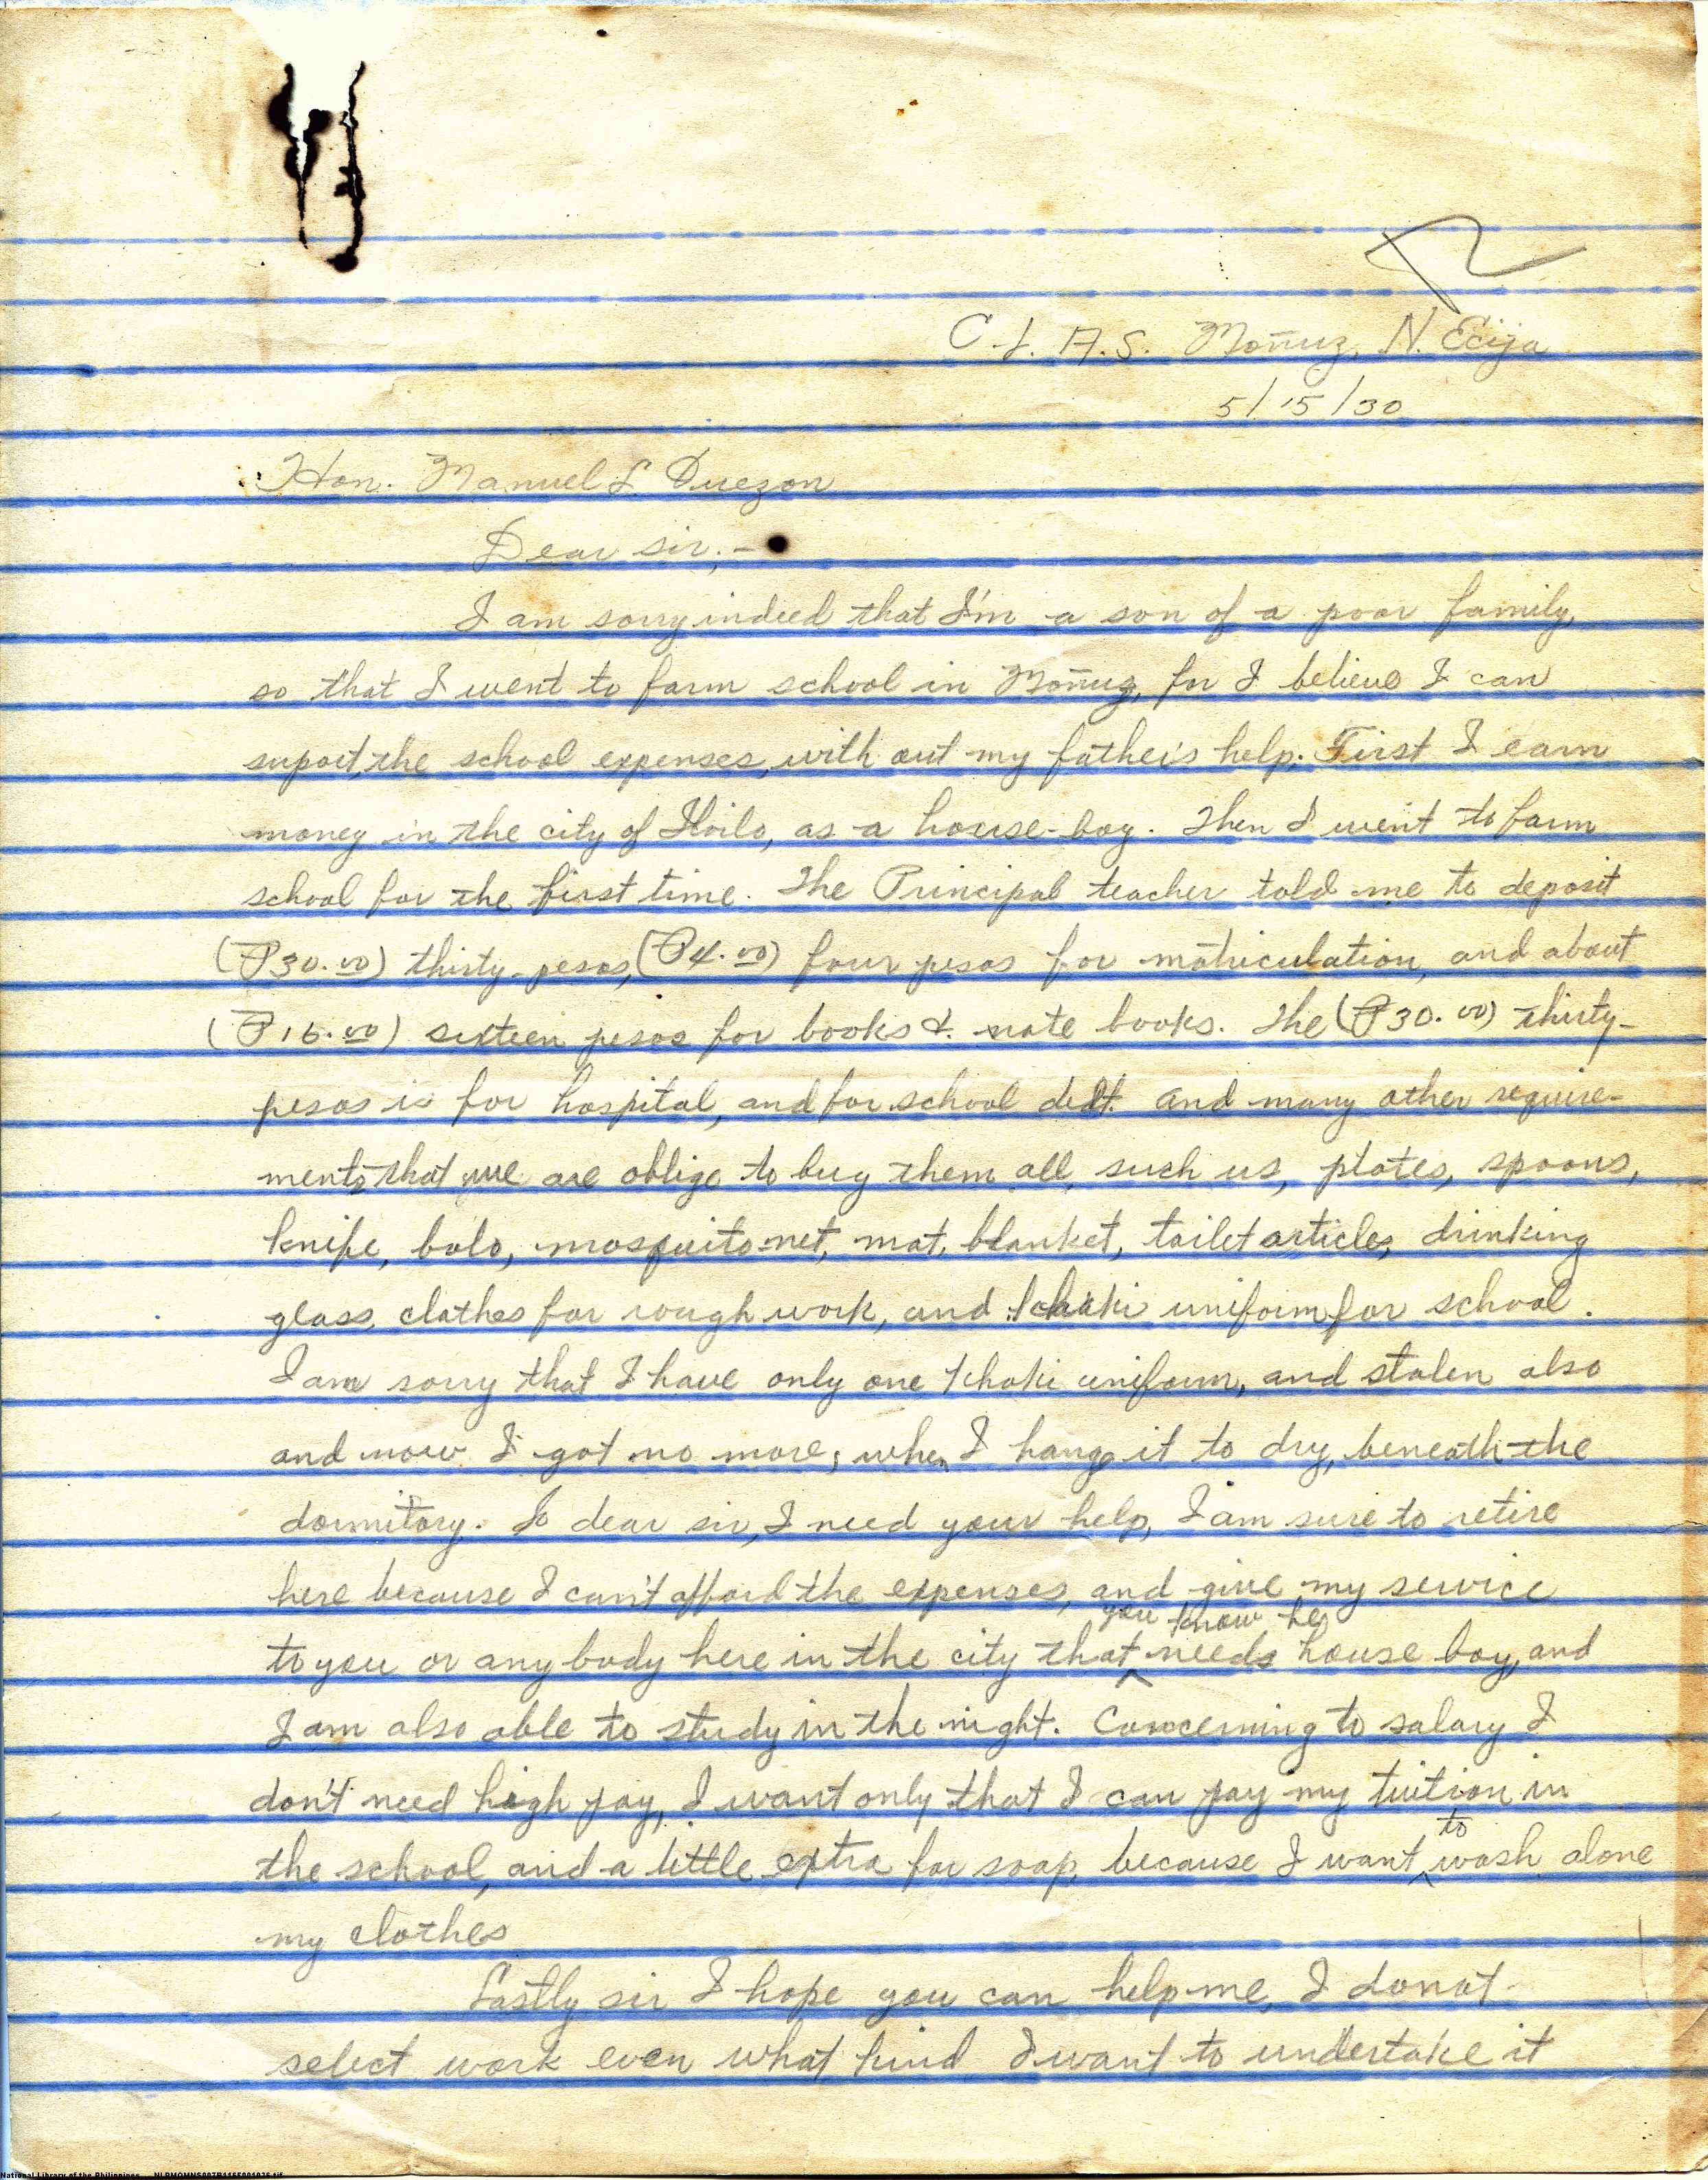 C. L. A. S. Moñuz, N. Ecija
5/15/30
Hon. Manuel L. Quezon
Dear sir;-
I am sorry indeed that I'm a son of a poor family,
so that I went to farm school in Moñuz, for I believe I can
suport, the school expenses, with out my father's help. First I earn
money in the city of Iloilo, as a house-boy. Then I went to farm
school for the first time. The Principal teacher told me to deposit
(₱30.00) thirty-pesos, (₱4.00) four pesos for matriculation, and about
(₱16.00) sixteen pesos for books & note books. The (₱30.00) thirty-
pesos is for hospital, and for school debt. and many other require-
ments that we are oblige to buy them all, such us, plates, spoons,
knife, bolo, mosquito-net, mat, blanket, toilet articles, drinking
glass, clothes for rough work, and khaki uniform for school.
I am sorry that I have only one khaki uniform, and stolen also
and now I got no more, when I hang it to dry, beneath the
dormitory. So dear sir, I need your help, I am sure to retire
here because I can't afford the expenses, and give my service
to you or any body here in the city that you know he needs house boy, and
I am also able to study in the night. Concerning to salary I
don't need high pay, I want only that I can pay my tuition in
the school, and a little extra for soap, because I want to wash alone
my clothes
Lastly sir I hope you can help me, I donot
select work even what kind I want to undertake it
National Library of the Philippines